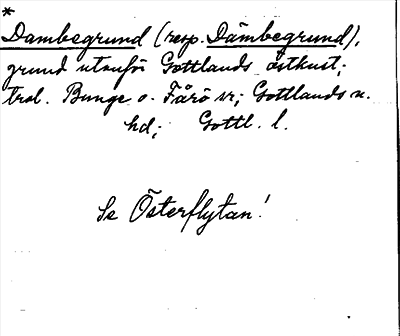 *
Dambegrund (resp. Dämbegrund),
grund utanför Gottlands östkust;
trol. Bunge o. Fårö sr; Gottlands n.
hd; Gottl. l.
Se Österflytan!